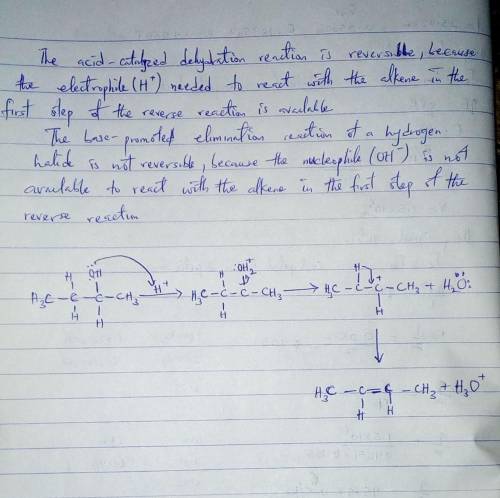 The acid-catalyzed dehydration reaction is reversible, because
the electrophile (H⁺) needed to react with the alkene in the
first step of the reverse reaction is available
The base-promoted elimination reaction of a hydrogen
halide is not reversible, because the nucleophile (OH⁻) is not
available to react with the alkene in the first step of the
reverse reaction
H :OH H :OH₂⁺ H
H₃C - C - C - CH₃ H⁺ H₃C - C - C - CH₃ H₃C - C - C⁺ - CH₃ + H₂O:
H H H H
H₃C - C = C - CH₃ + H₃O⁺
H H